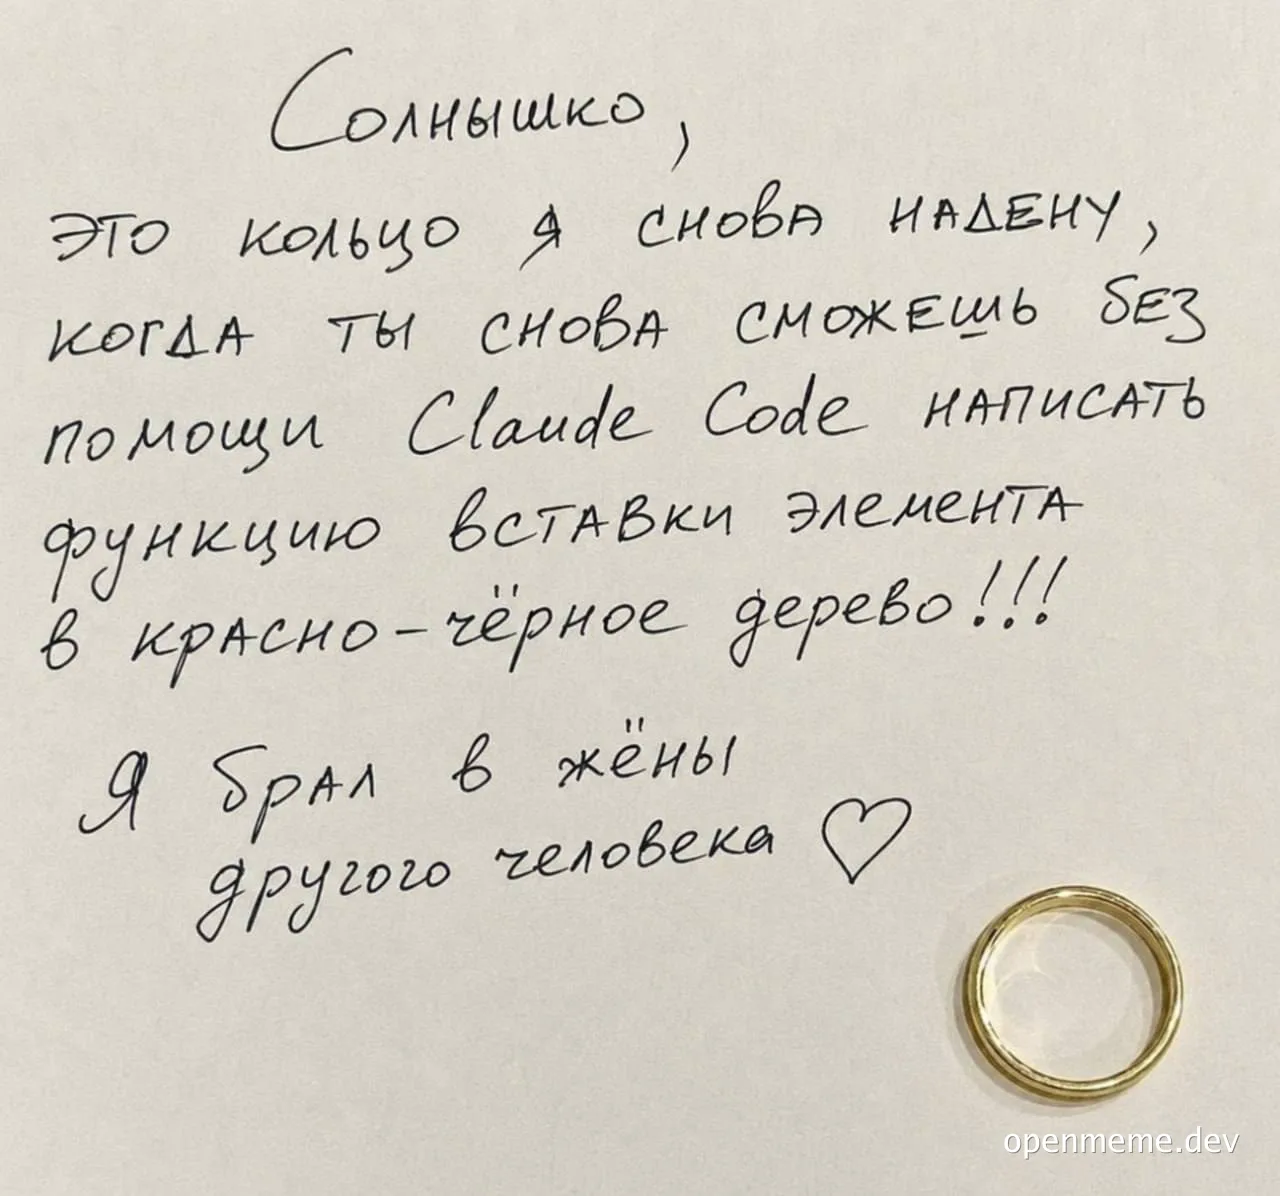 Солнышко,
это кольцо я снова надену,
когда ты снова сможешь без
помощи Claude Code написать
функцию вставки элемента
в красно-чёрное дерево!!!
Я брал в жёны
другого человека ♡
openmeme.dev